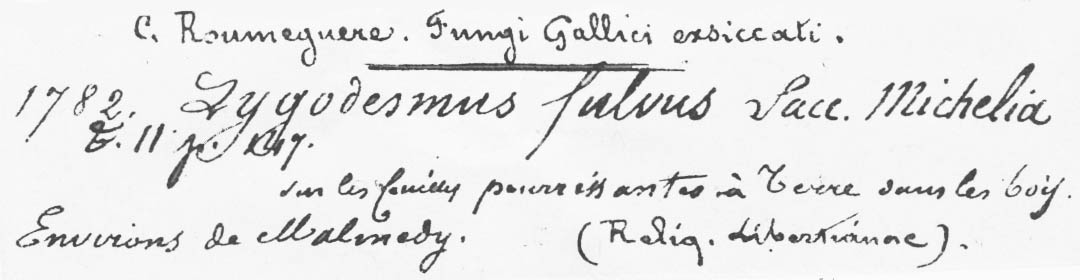 C. Roumeguere. Fungi Gallici exsiccati.
1782. Zygodesmus fulvus Sacc. Michelia
t. II p. 147.
sur les feuilles pourrissantes à Terre dans les bois.
Environs de Malmedy. (Reliq. Libertianae).